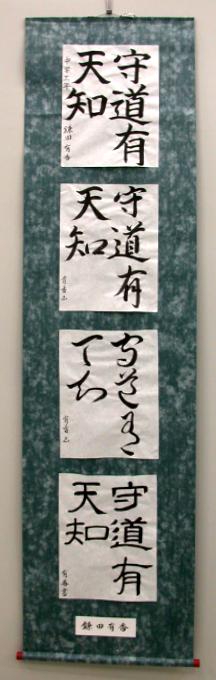 守道有
天知
鎌田有香
守道有
天知
有香
守道有
天知
有香
守道有
天知
有香書
鎌田有香